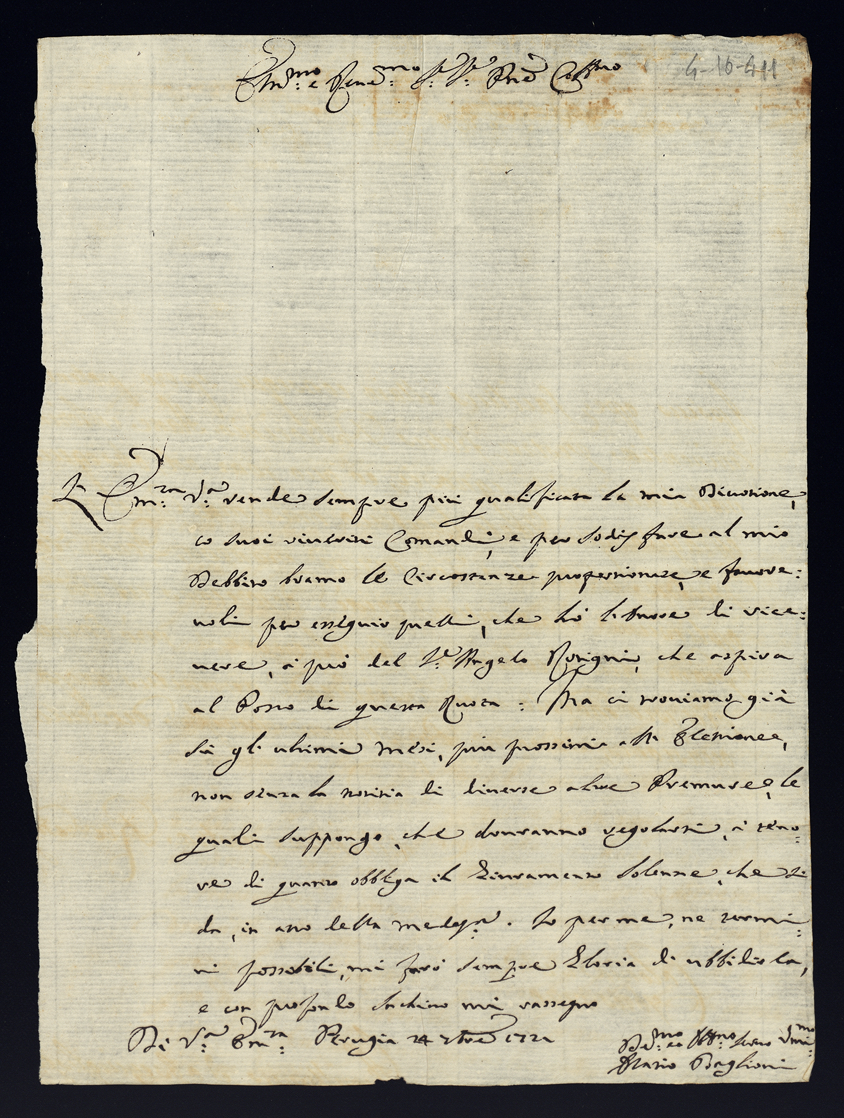 4-16-411
Em:mo e Rene:mo Sr: Sr: Prñe Coll:mo
L' Em:za V:ra rende sempre più qualificata la mia Divotione,
co suoi riveriti Comandi, e per sodisfare al mio
Debbito bramo le Circostanze proportionate, e favore:
voli per esseguir quelli, che hò l'honore di rice:
vere, à prò del Sr: Angelo che aspira
al Posto di questa Ruota: Ma ci troviamo già
sù gl'ultimi mesi, più prossimi alla Elettione,
non senza la notitia di diverse altre Premure, le
quali suppongo, che dovranno regolarsi, à teno:
re di quanto obbliga il Giuramento solenne, che si
dà, in atto della medes:ma. Io per me, ne termi:
ni possibili, mi farò sempre Gloria di ubbidirla,
e con profondo Inchino mi rassegno
Di V:ra Em:za Perugia 24 7bre 1721
Dev:mo et Obb:mo servo
Baglioni